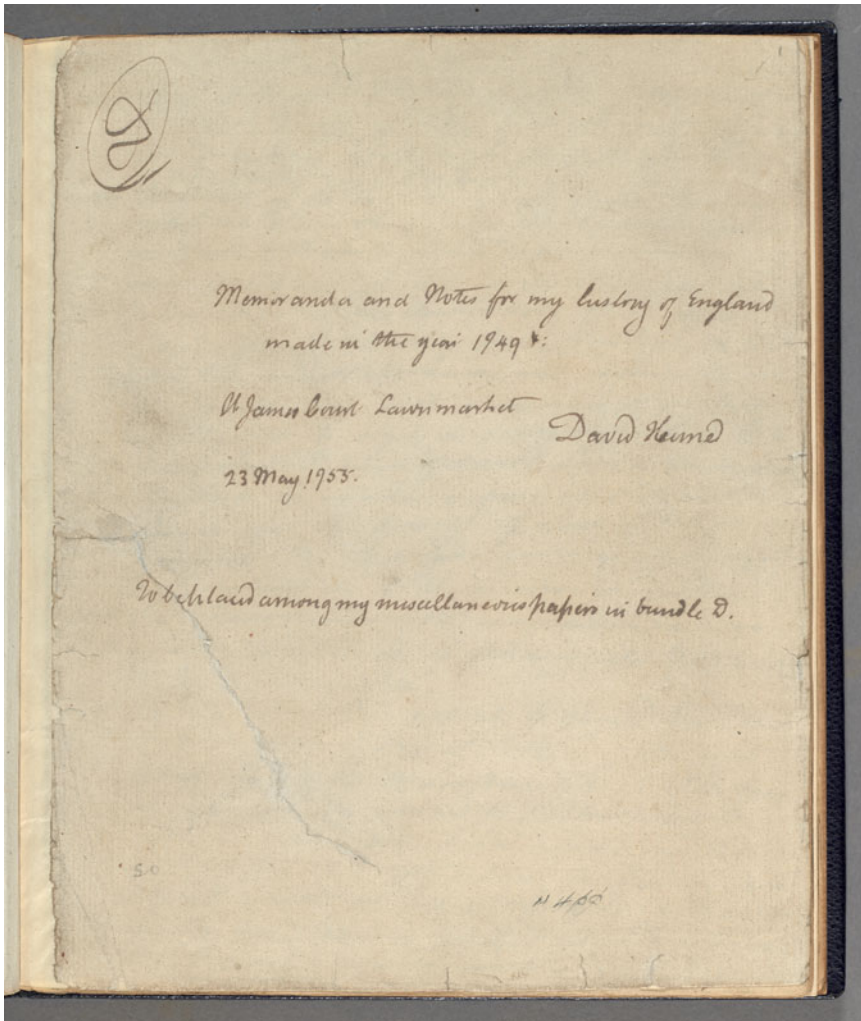 D
Memoranda and Notes for my history of England
made in the year 1749 :
At James Court Lawnmarket
David Hume
23 May 1755.
To be placed among my miscellaneous papers in bundle D.
50